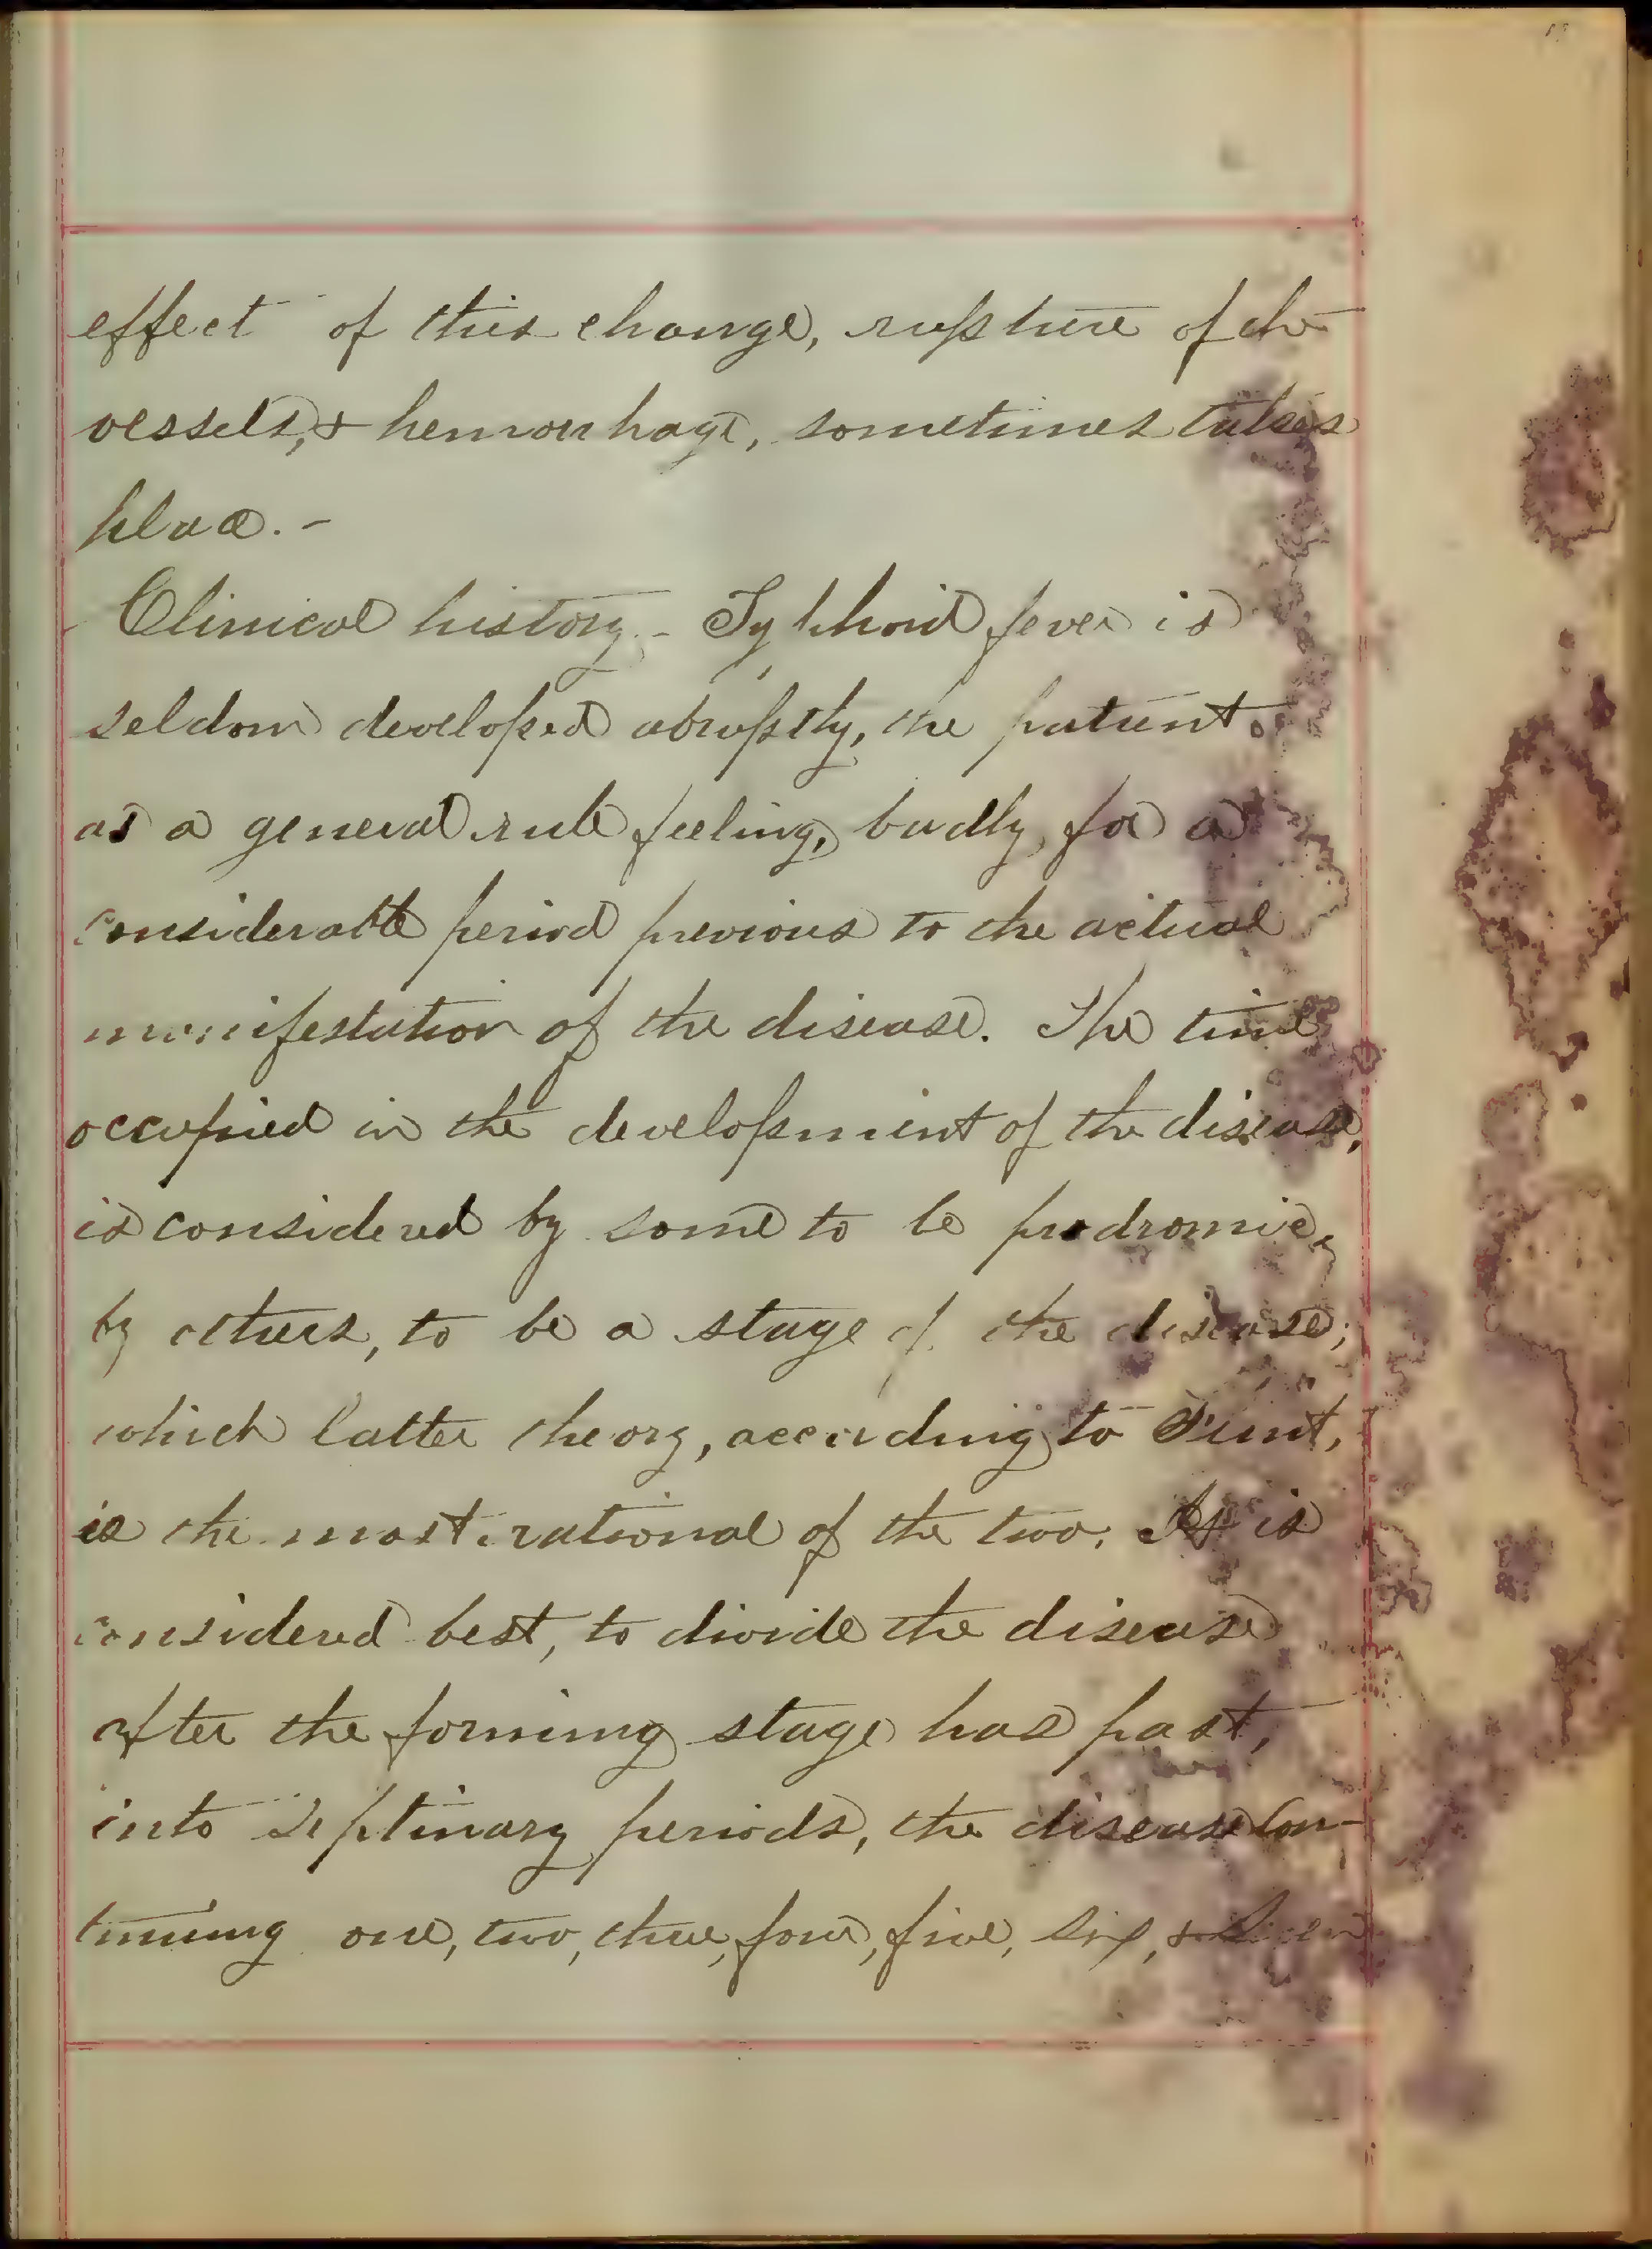 effect of this change, rupture of the
vessels, & hemorrhage, sometimes takes
place. -
Clinical history. - Typhoid fever is
seldom developed abruptly, the patient
as a general rule feeling, badly, for a
considerable period previous to the actual
manifestation of the disease. The time
occupied in the development of the disease,
is considered by some to be prodromic,
by others, to be a stage of the disease;
which latter theory, according to Flint,
is the most rational of the two. It is
considered best, to divide the disease
after the forming stage has past,
into septinary periods, the disease con-
tinuing one, two, three, four, five, six, & seven